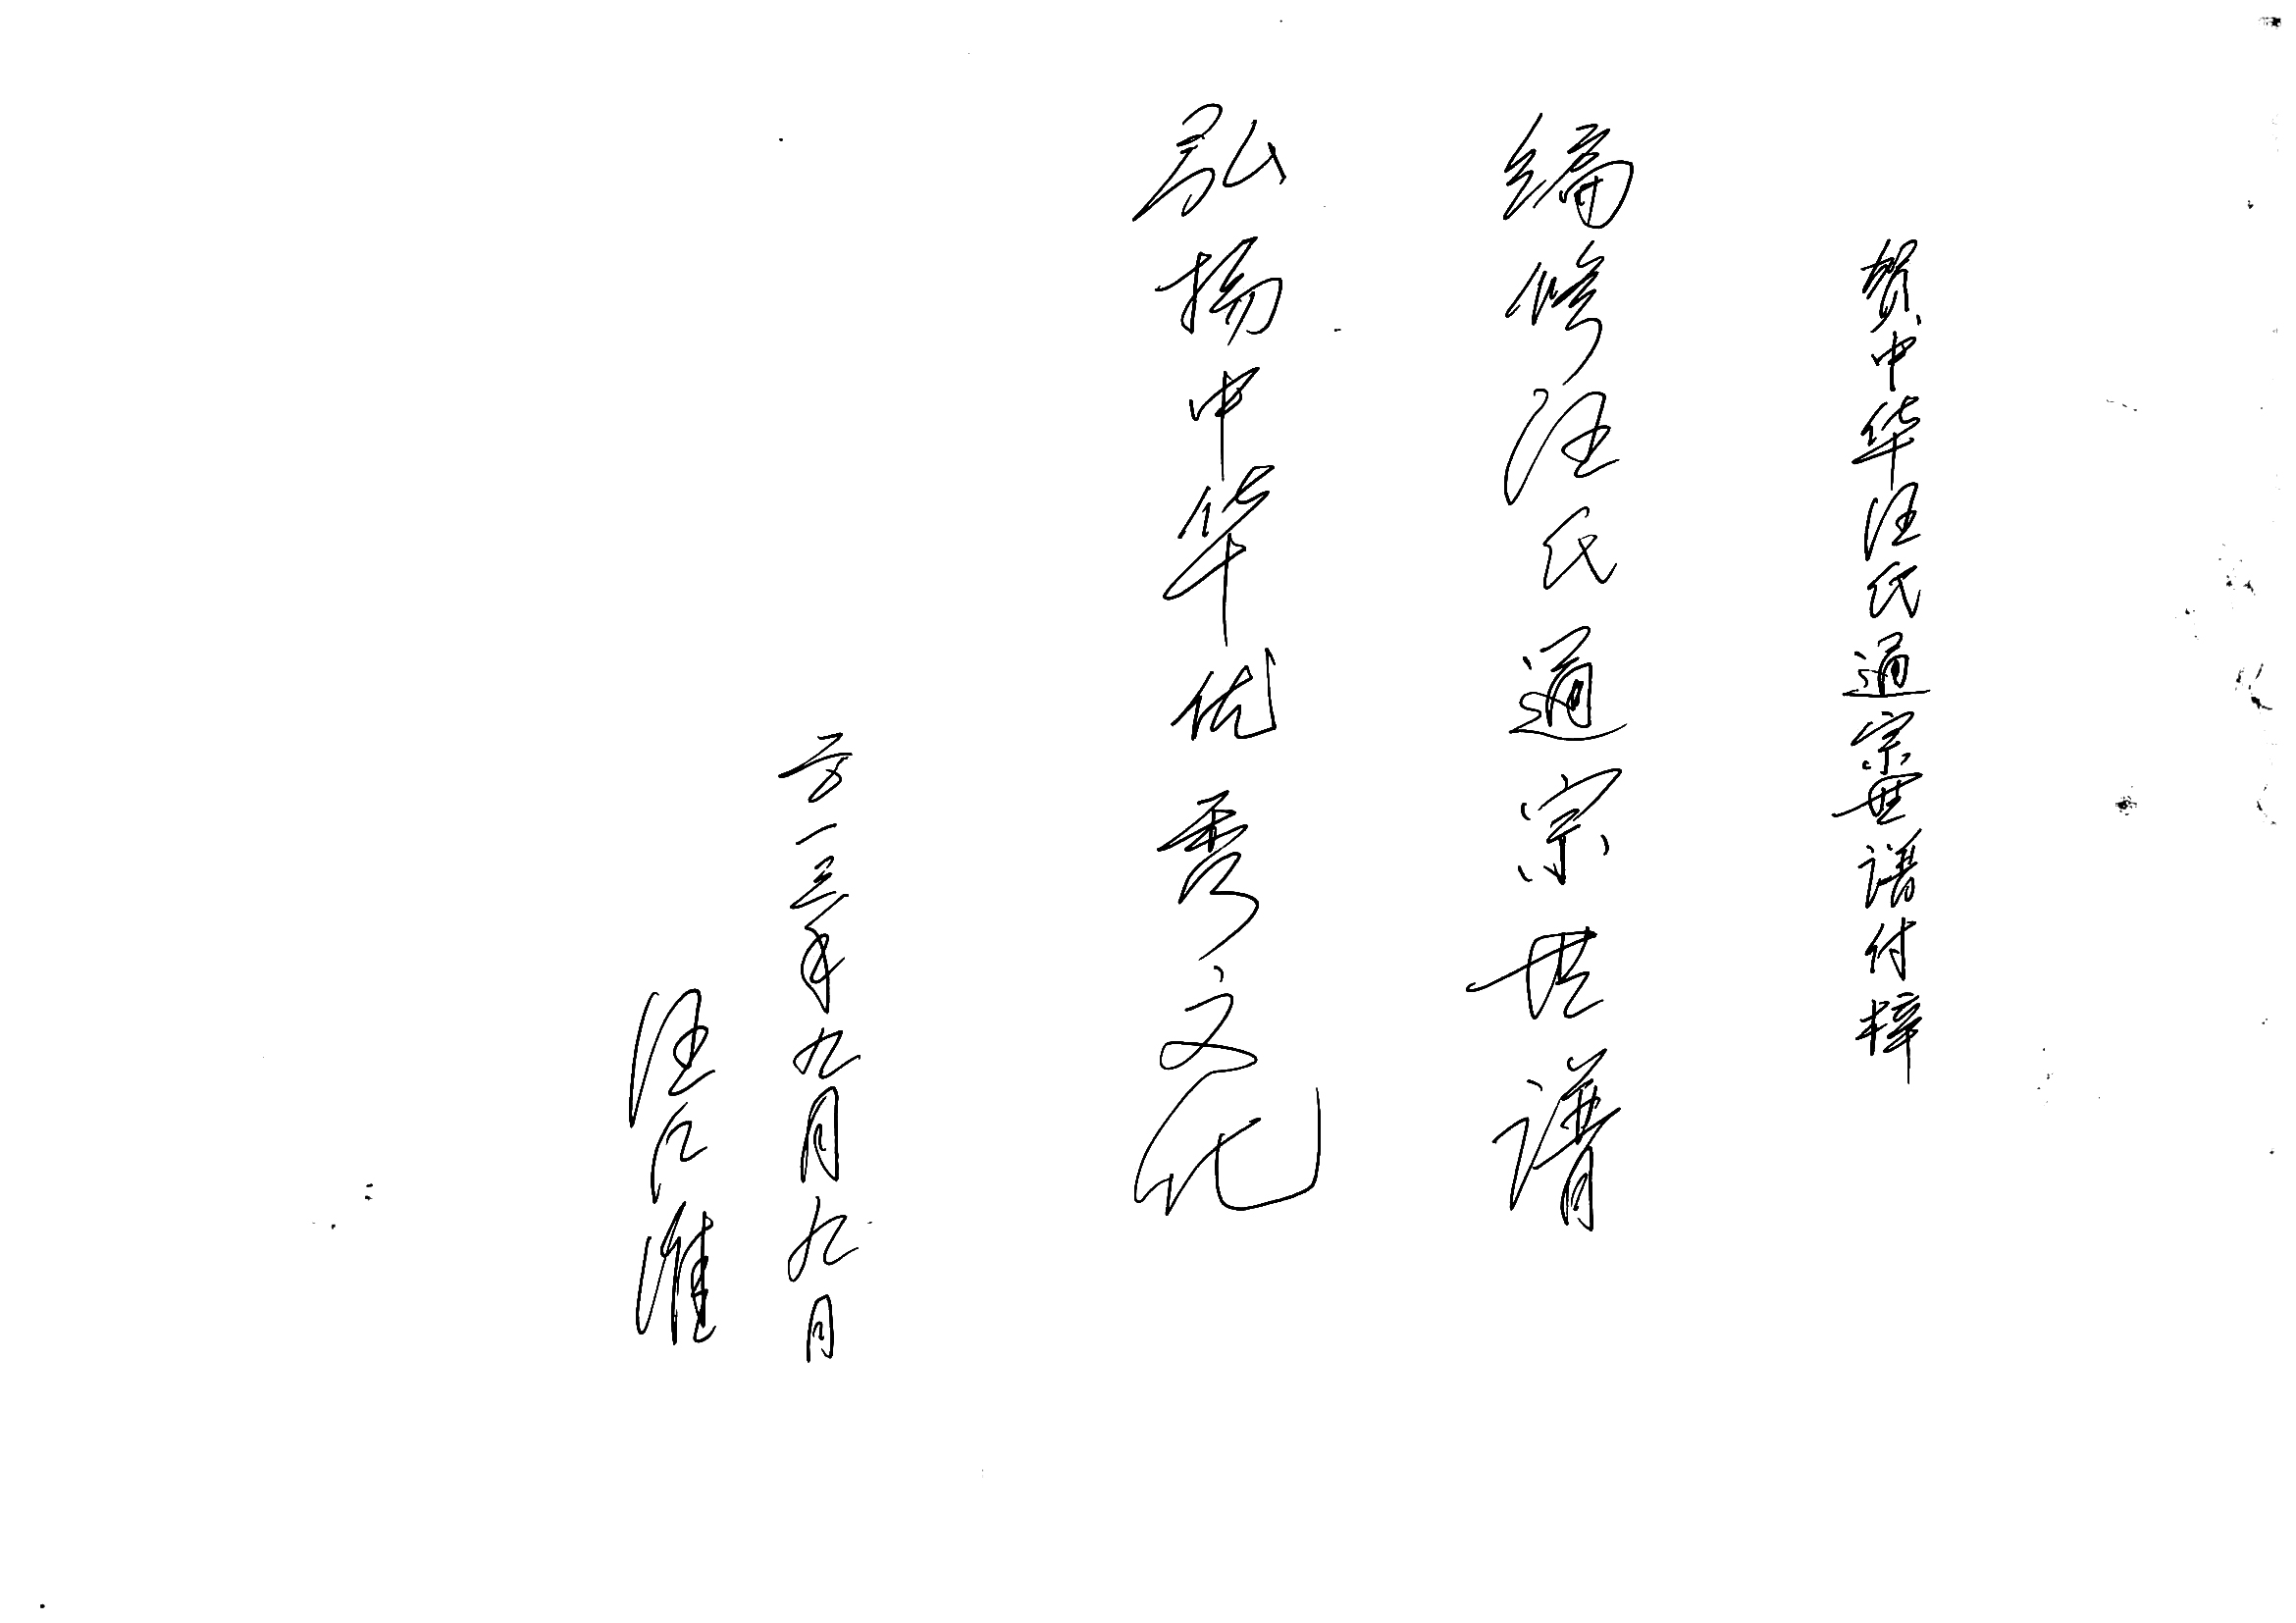 贺中华汪氏通宗世谱付梓
编修汪氏通宗世谱
弘扬中华优秀文化
二〇一三年九月九日
汪仁淮